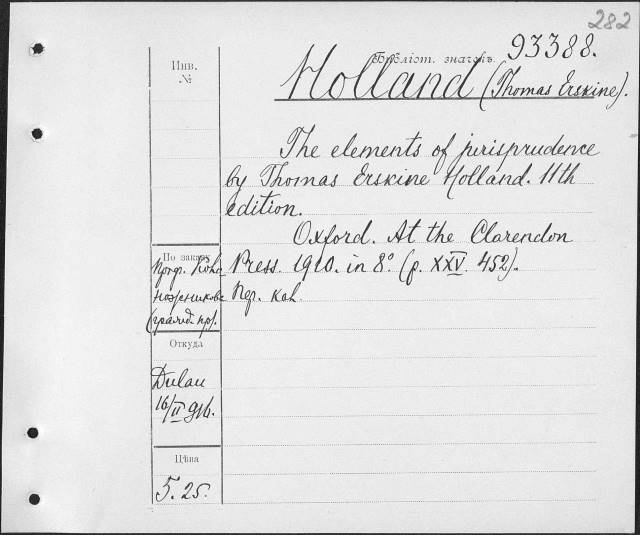 282
Инв.
№
Библіот. значекъ. 93388.
Holland (Thomas Erskine).
The elements of jurisprudence
by Thomas Erskine Holland. 11th
edition.
Oxford. At the Clarendon
Press. 1910. in 8° (p. XXV. 452).
Пер. кол.
По заказу
Проф.
(гражд. пр).
Откуда
Dulau
16/II 916.
Цѣна
5.25.